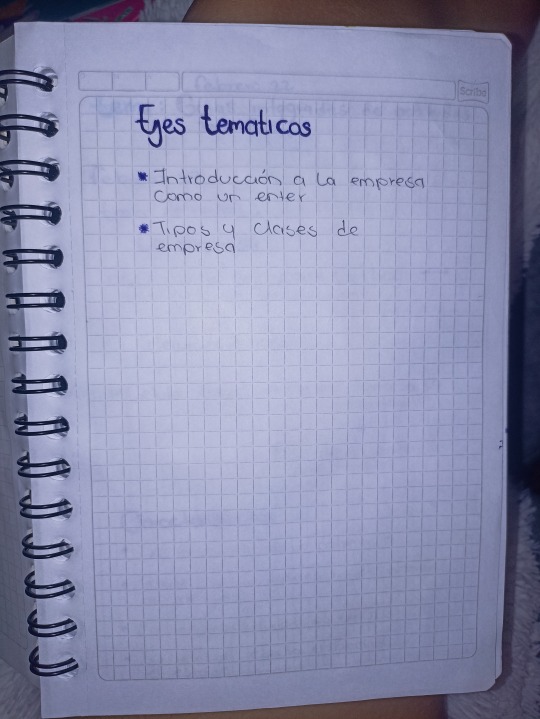 Scribe
Ejes tematicos
* Introducción a la empresa
como un enter
* Tipos y clases de
empresa